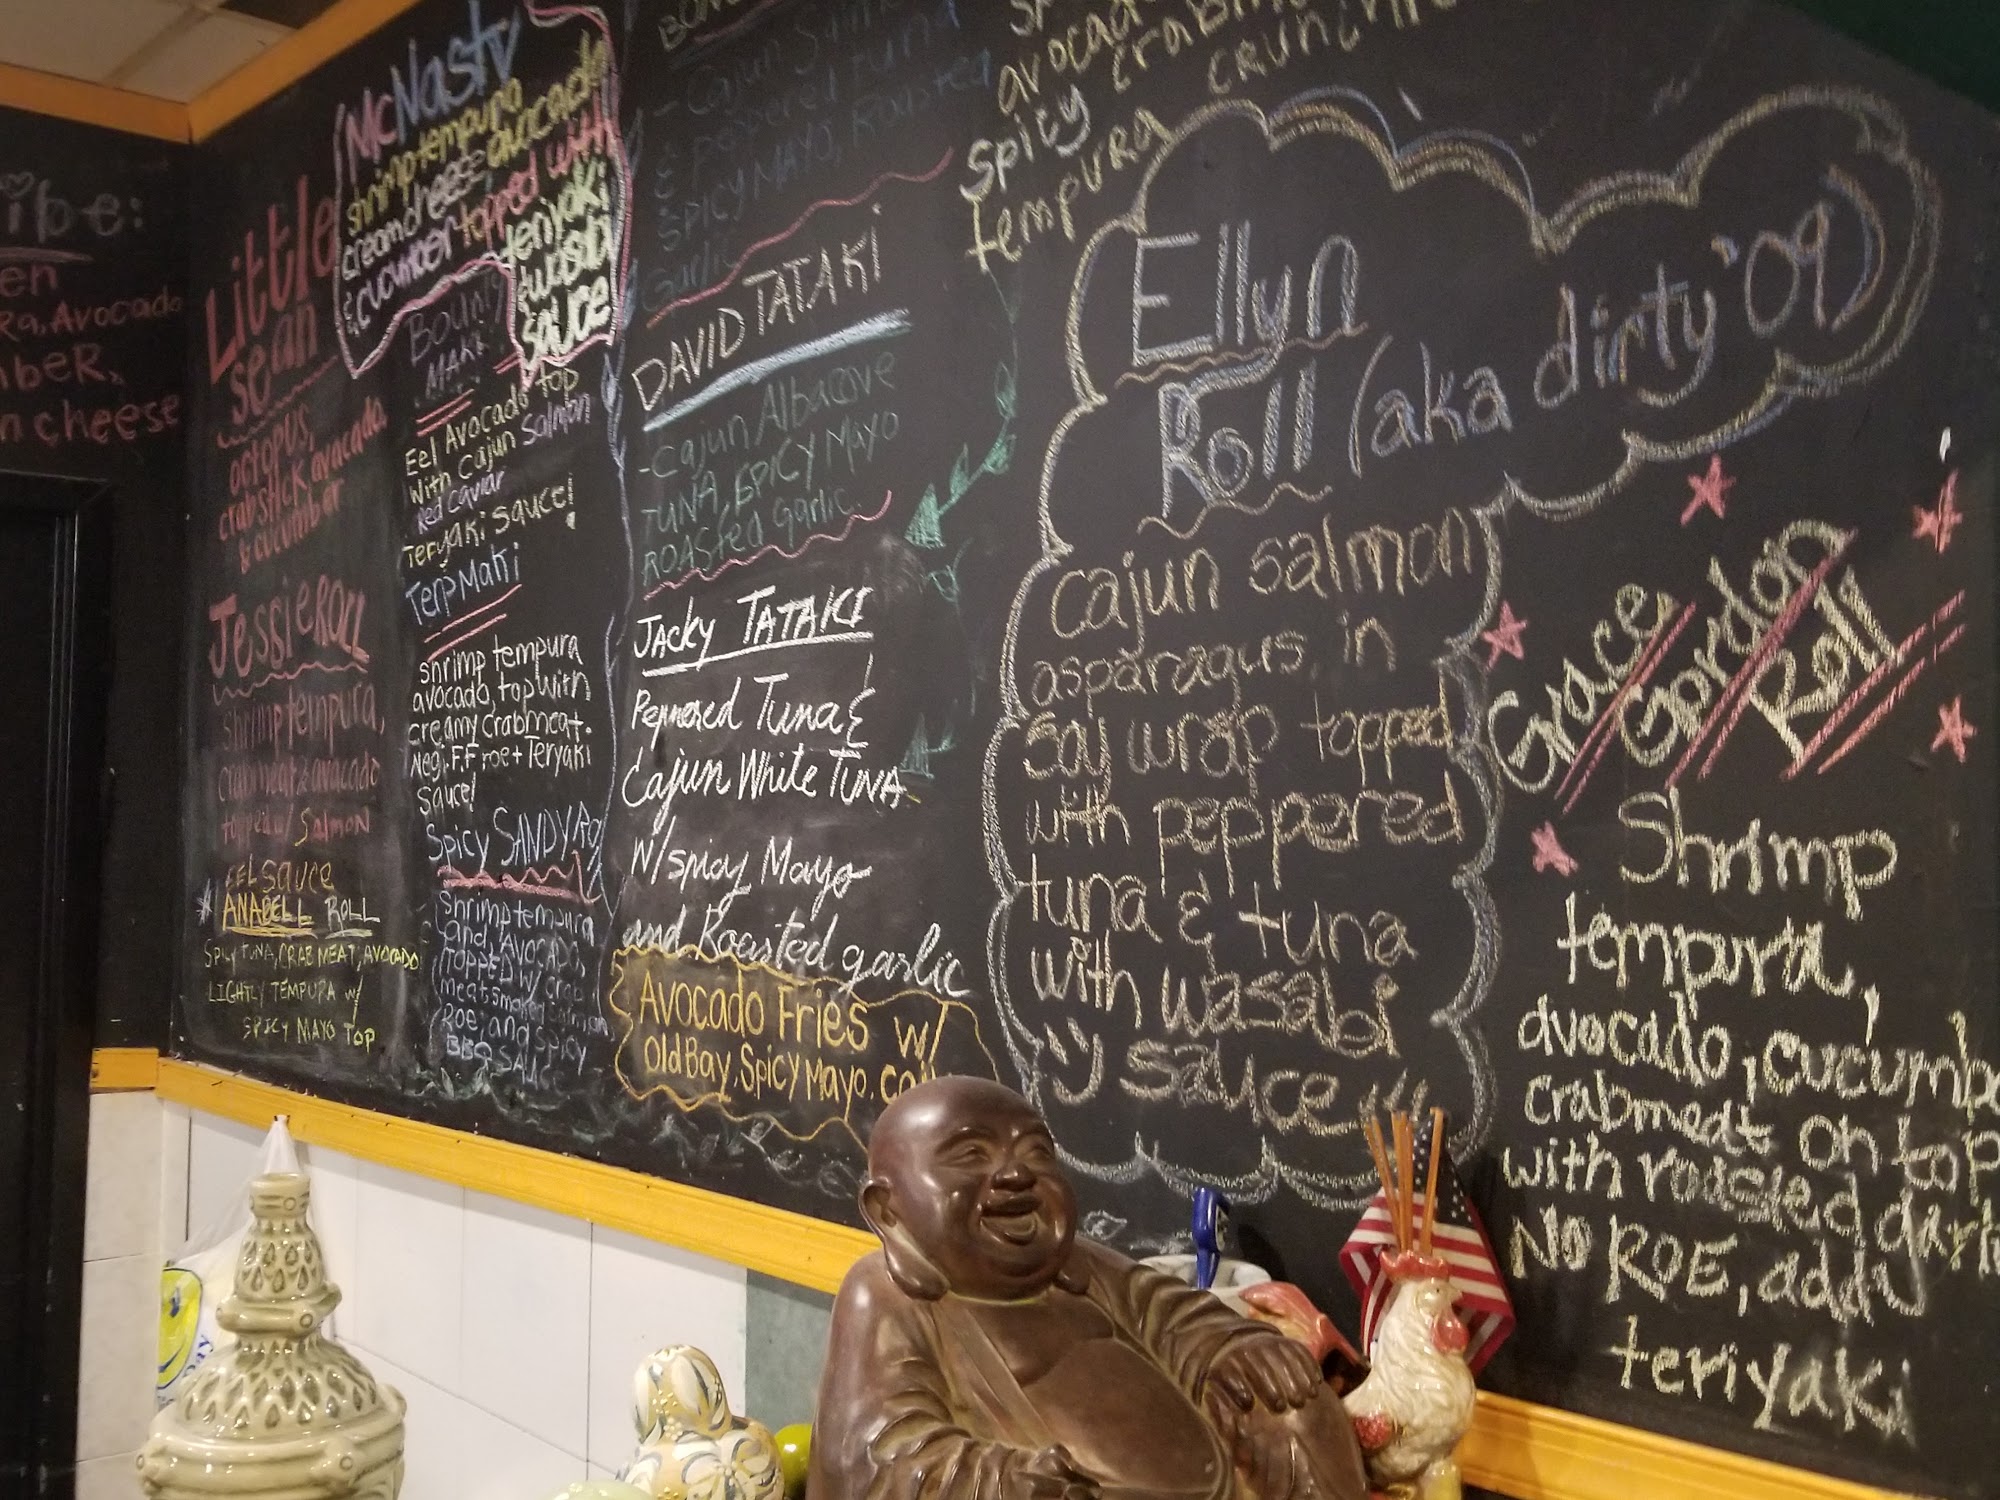 ibe:
en
Ra, Avocado
mbeR,
n cheese
Little
Sean
octopus,
crabstick, avocado,
& cucumber
JessieRoll
Shrimp tempura,
crabmeat & avocado
topped w/ Salmon
EEL Sauce
* ANABELL ROLL
SPICY TUNA, CRAB MEAT, AVOCADO
LIGHTLY TEMPURA W/
SPICY MAYO TOP
McNasty
shrimp tempura
creamcheese, avocado
& cucumber topped with
teriyaki
& wasabi
sauce
Bounty
MAKI
Eel Avocado top
With Cajun Salmon
Red Caviar
Teryaki Sauce!
Terp Maki
shrimp tempura
avocado, top with
creamy crabmeat.
Negi. F.F roe + Teryaki
Sauce!
Spicy SANDY Ro
Shrimp tempura
and, AVOCADO,
TOPPED W/ Crab
meat smoked Salmon
Roe, and spicy
BBQ SAUCE
- Cajun Salm
& peppered tuna
SPICY MAYO, Roasted
Garlic
DAVID TATAKI
- Cajun Albacove
TUNA, SPICY Mayo
ROASted garlic
JACKY TATAKI
Peppered Tuna &
Cajun White TUNA
W/ spicy Mayo
and Roasted garlic
Avocado Fries w/
Old Bay, Spicy Mayo.
avocado
Spicy crabm
tempura crunc
Ellyn
Roll (aka dirty '09)
cajun salmon
asparagus in
soy wrap topped
with peppered
tuna & tuna
with wasabi
sauce
Grace
Gordon
Roll
Shrimp
tempura,
avocado, cucumb
Crabmeat on top
with roasted garl
No ROE, add
teriyaki